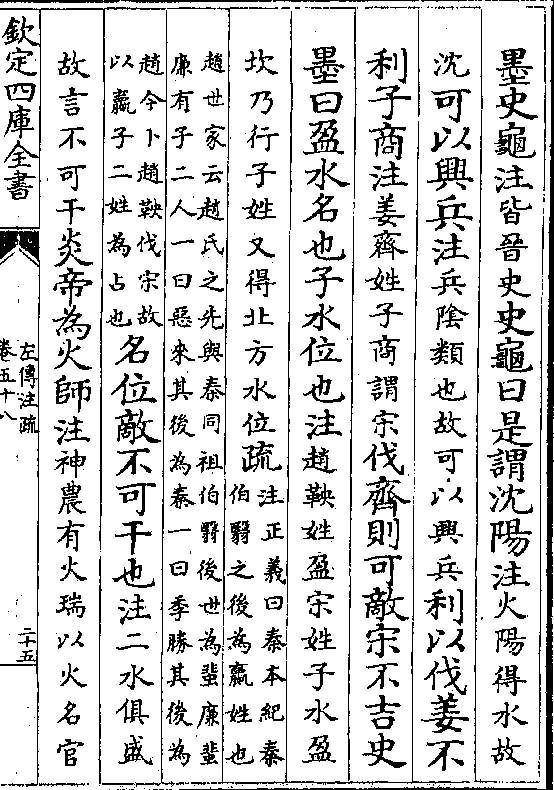 墨史龜注皆晉史史龜曰是謂沈陽注火陽得水故
沈可以興兵注兵陰類也故可以興兵利以伐姜不
利子商注姜齊姓子商謂宋伐齊則可敵宋不吉史
墨曰盈水名也子水位也注趙鞅姓盈宋姓子水盈
坎乃行子姓又得北方水位疏
注正義曰秦本紀秦
伯翳之後為嬴姓也
趙世家云趙氏之先與秦同祖伯翳後世為蜚廉蜚
廉有子二人一曰惡來其後為秦一曰季勝其後為
趙今卜趙鞅伐宋故
以嬴子二姓為占也
名位敵不可干也注二水俱盛
故言不可干炎帝為火師注神農有火瑞以火名官
欽定四庫全書
左傳注疏
卷五十八
二十五